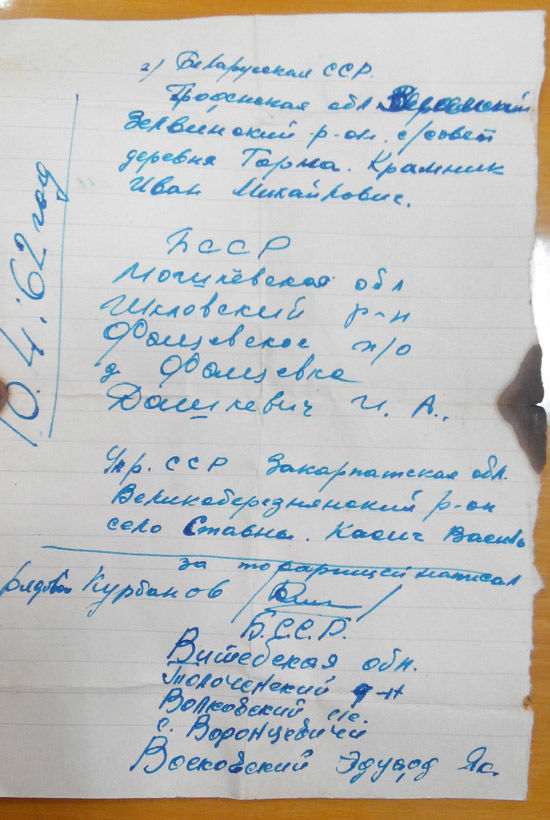 2) Беларусская ССР.
Гродненская обл.
Зелвинский р-он. с/совет
деревня Горна. Крамник
Иван Михайлович.
БССР
Могилёвская обл
Шкловский р-н
Фащевское п/о
д Фащевка
Дашкевич И. А.,
Укр. ССР Закарпатская обл.
Великоберезнянский р-он
село Ставна.
за товарищей написал
рядовой Курбанов
Б.С.С.Р.
Витебская обл.
Толоченский р-н
Волковский с/с.
с. Воронцевичи
Восковский Эдуард Як.
10.4.62 год